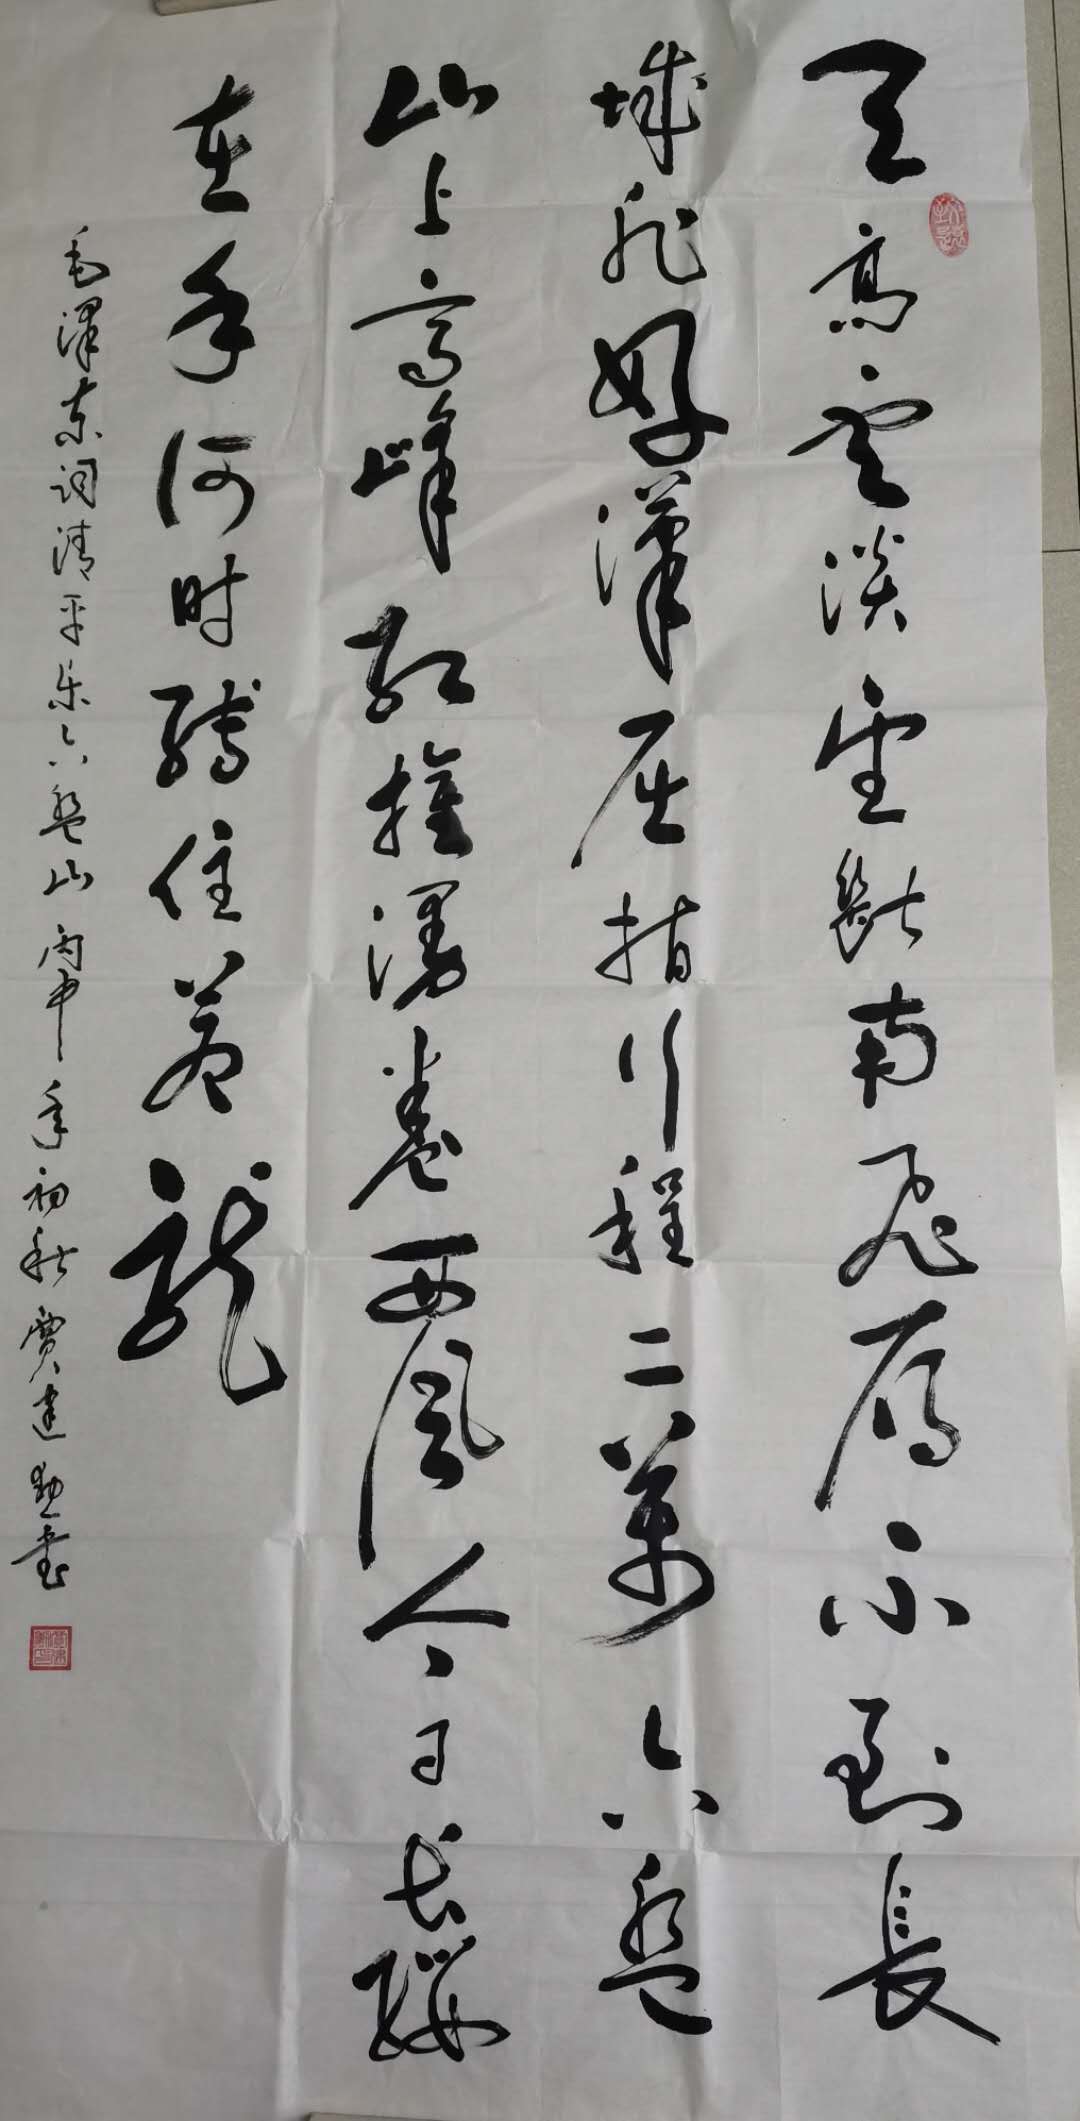 天高云淡望断南飞雁不到长
城非好汉屈指行程二万六盘
山上高峰红旗漫卷西风今日长缨
在手何时缚住苍龙
毛泽东词清平乐六盘山丙申年初秋贾建勋书